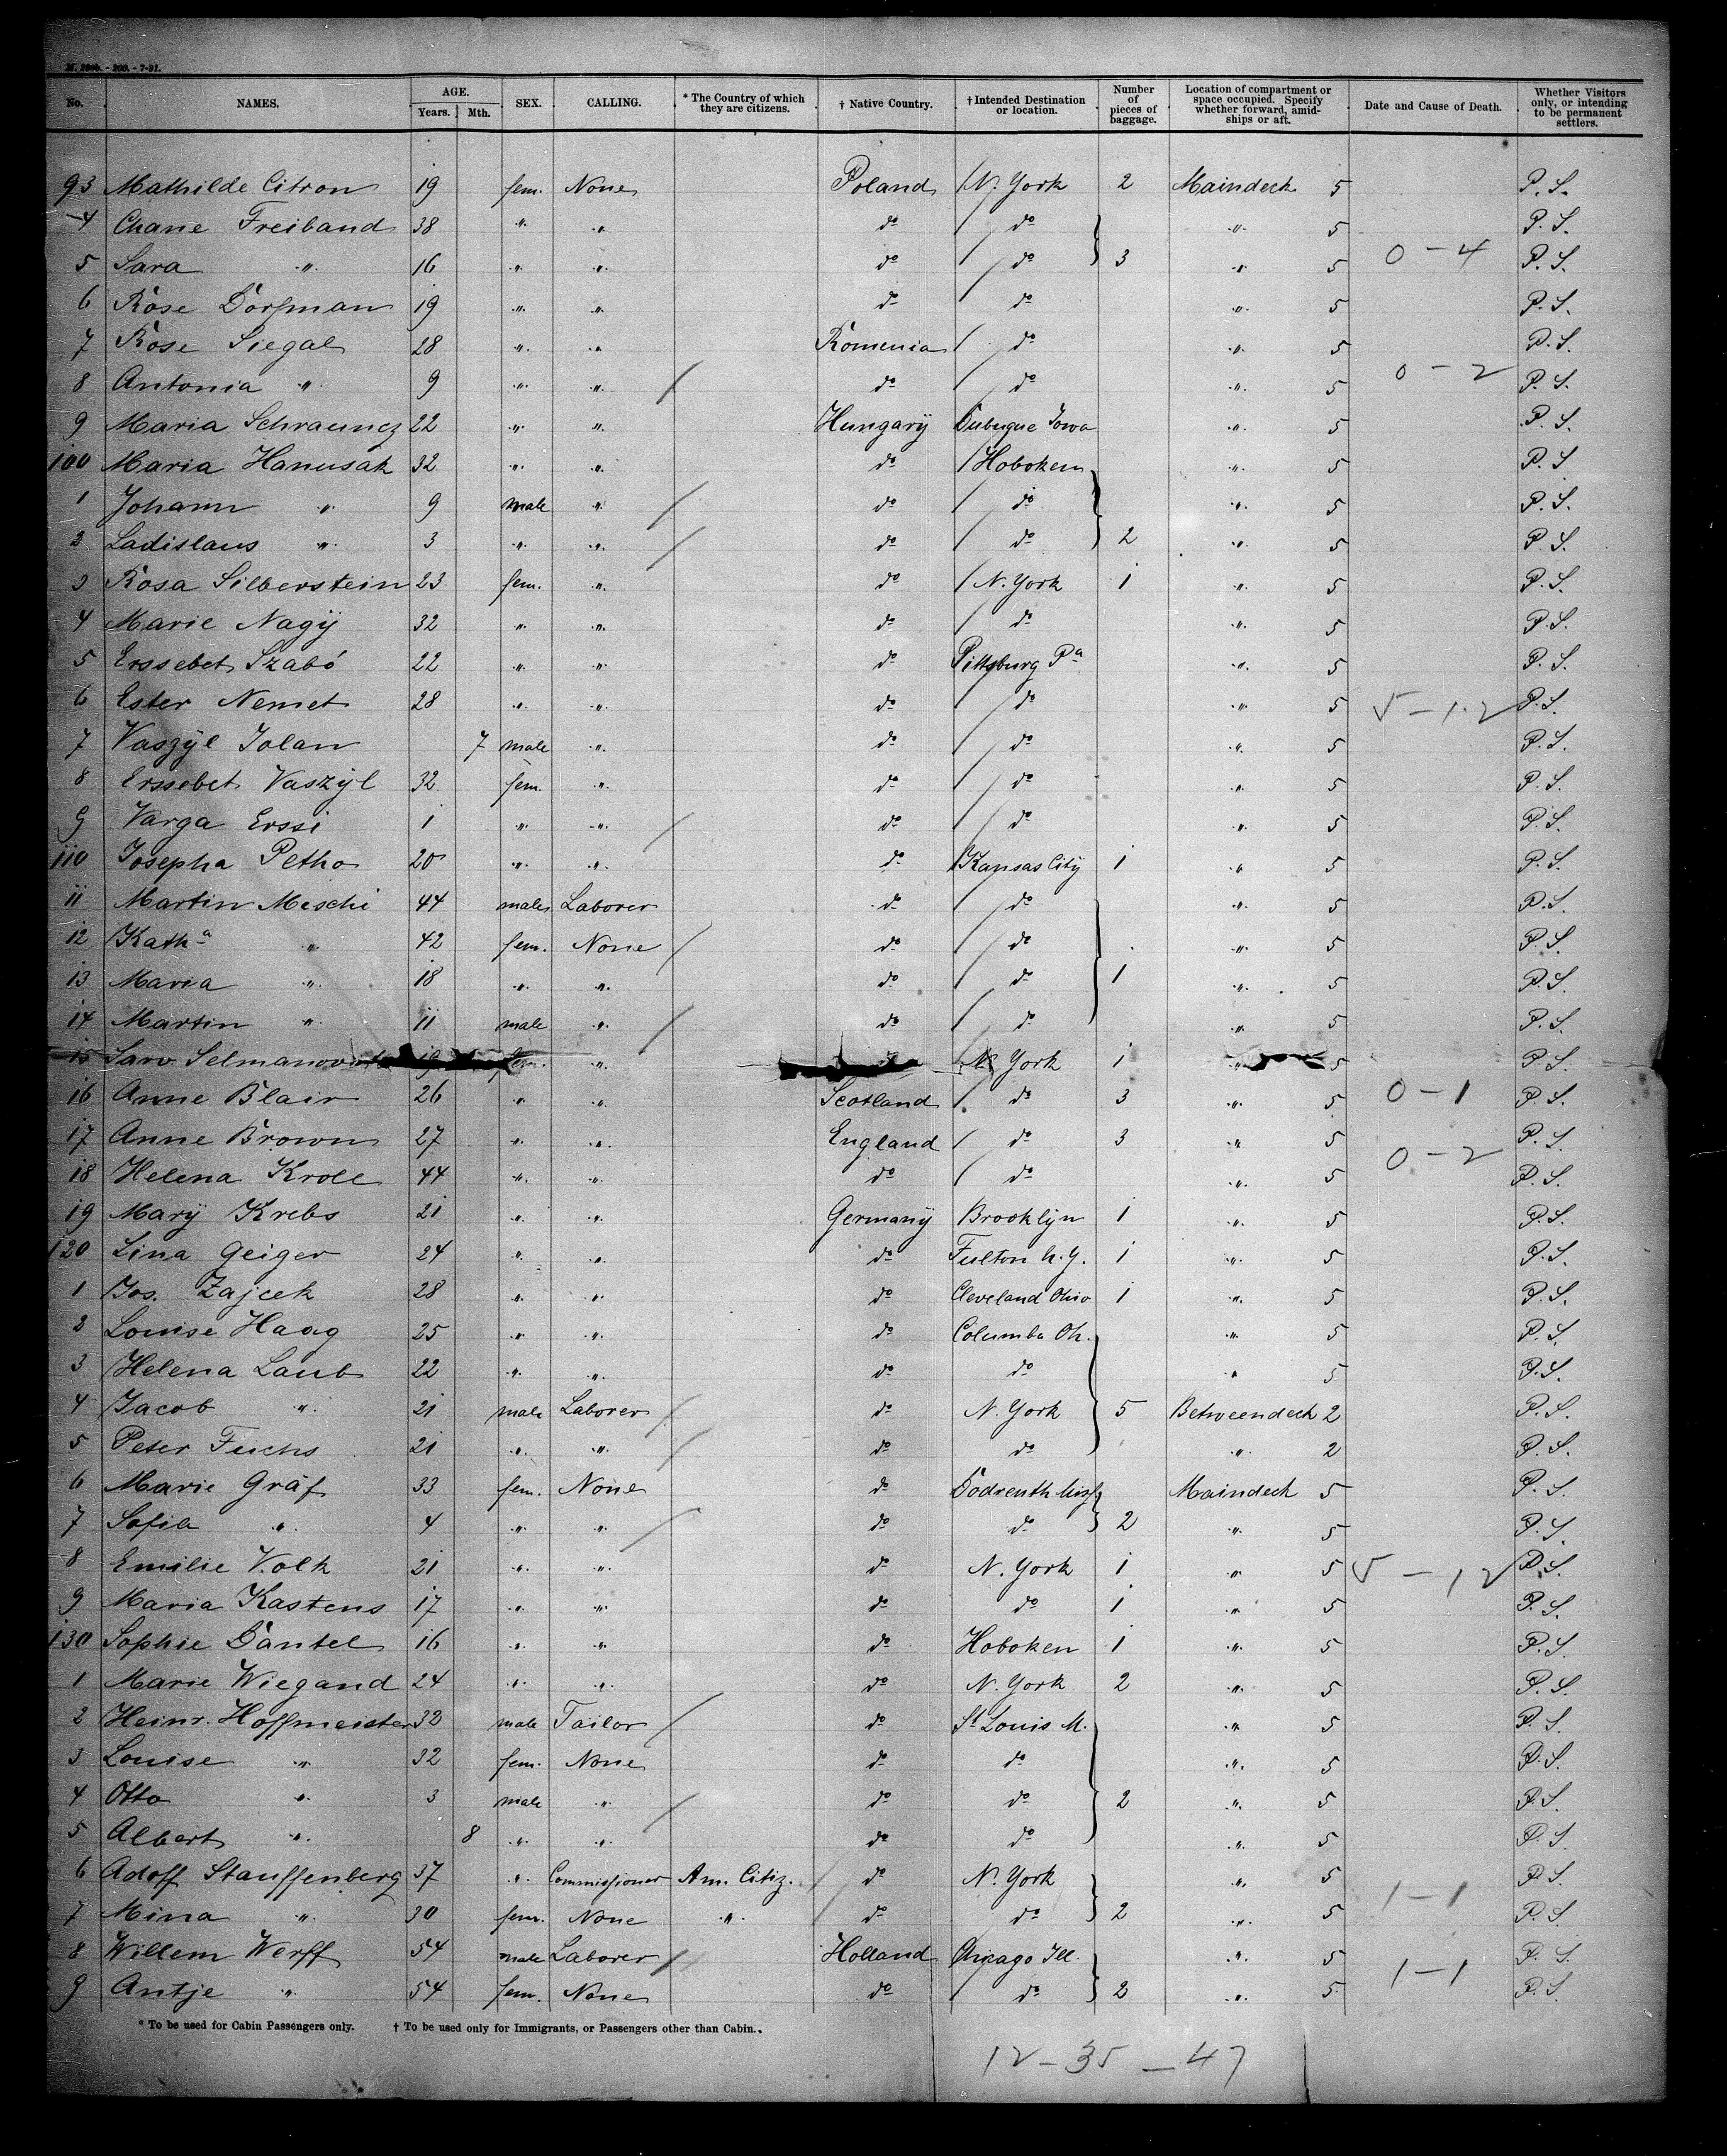 M. 290b. - 200. - 7-91.
No. NAMES. AGE. Years. Mth. SEX. CALLING. * The Country of which they are citizens. † Native Country. † Intended Destination or location. Number of pieces of baggage. Location of compartment or space occupied. Specify whether forward, amidships or aft. Date and Cause of Death. Whether Visitors only, or intending to be permanent settlers.
93 Mathilde Citron 19 fem. None Poland / N. York 2 Maindeck 5 P. S.
4 Chane Freiband 38 " " do / do " 5 P. S.
5 Sara " 16 " " do / do 3 " 5 0 - 4 P. S.
6 Rose Dorfman 19 " " do / do " 5 P. S.
7 Rose Siegal 28 " " Romenia / do " 5 P. S.
8 Antonia " 9 " " / do / do " 5 0 - 2 P. S.
9 Maria Schrauncz 22 " " Hungarÿ Dubuque Iowa " 5 P. S.
100 Maria Hanusak 32 " " do / Hoboken " 5 P. S.
1 Johann " 9 male " / do / do " 5 P. S.
2 Ladislaus " 3 " " / do / do 2 " 5 P. S.
3 Rosa Silberstein 23 fem. " do / N. York 1 " 5 P. S.
4 Marie Nagÿ 32 " " do / do " 5 P. S.
5 Erssebet Szabó 22 " " do Pittsburg Pa " 5 P. S.
6 Ester Nemet 28 " " do / do " 5 5 - 12 P. S.
7 Vaszÿl Jolan 7 male " do / do " 5 P. S.
8 Erssebet Vaszÿl 32 fem. " do / do " 5 P. S.
9 Varga Erssi 1 " " / do / do " 5 P. S.
110 Josepha Petho 20 " " do / Kansas Citÿ 1 " 5 P. S.
11 Martin Meschi 44 male Laborer do / do " 5 P. S.
12 Katha " 42 fem. None / do / do " 5 P. S.
13 Maria " 18 " " do / do 1 " 5 P. S.
14 Martin " 11 male " / do / do " 5 P. S.
15 Sarv 19 fem. " N. York 1 " 5 P. S.
16 Anne Blair 26 " " Scotland / do 3 " 5 0 - 1 P. S.
17 Anne Brown 27 " " England / do 3 " 5 P. S.
18 Helena Kroll 44 " " do / do " 5 0 - 2 P. S.
19 Marÿ Krebs 21 " " Germanÿ Brooklÿn 1 " 5 P. S.
120 Lina Geiger 24 " " do Fulton N.Y. 1 " 5 P. S.
1 Jos. Zajcek 28 " " do Cleveland Ohio 1 " 5 P. S.
2 Louise Haag 25 " " do Columba Oh. " 5 P. S.
3 Helena Laub 22 " " do do " 5 P. S.
4 Jacob " 21 male Laborer / do N. York 5 Betweendeck 2 P. S.
5 Peter Fuchs 21 " " / do do " 2 P. S.
6 Marie Gräf 33 fem. None do Maindeck 5 P. S.
7 Sofie " 4 " " / do do 2 " 5 P. S.
8 Emilie Volk 21 " " do N. York 1 " 5 5 - 12 P. S.
9 Maria Kastens 17 " " do do 1 " 5 P. S.
130 Sophie Dantel 16 " " do Hoboken 1 " 5 P. S.
1 Marie Wiegand 24 " " do N. York 2 " 5 P. S.
2 Heinr. Hoffmeister 32 male Tailor / do St Louis M. " 5 P. S.
3 Louise " 32 fem. None do do " 5 P. S.
4 Otto " 3 male " / do do 2 " 5 P. S.
5 Albert " 8 " " do do " 5 P. S.
6 Adolf Stauffenberg 37 " Commissioner Am. Citiz. / do N. York " 5 P. S.
7 Mina " 30 fem. None " / do do 2 " 5 1 - 1 P. S.
8 Willem Werff 54 male Laborer // Holland Chicago Ill. " 5 P. S.
9 Antje " 54 fem. None do / do 2 " 5 1 - 1 P. S.
* To be used for Cabin Passengers only. † To be used only for Immigrants, or Passengers other than Cabin.
12 - 35 - 47